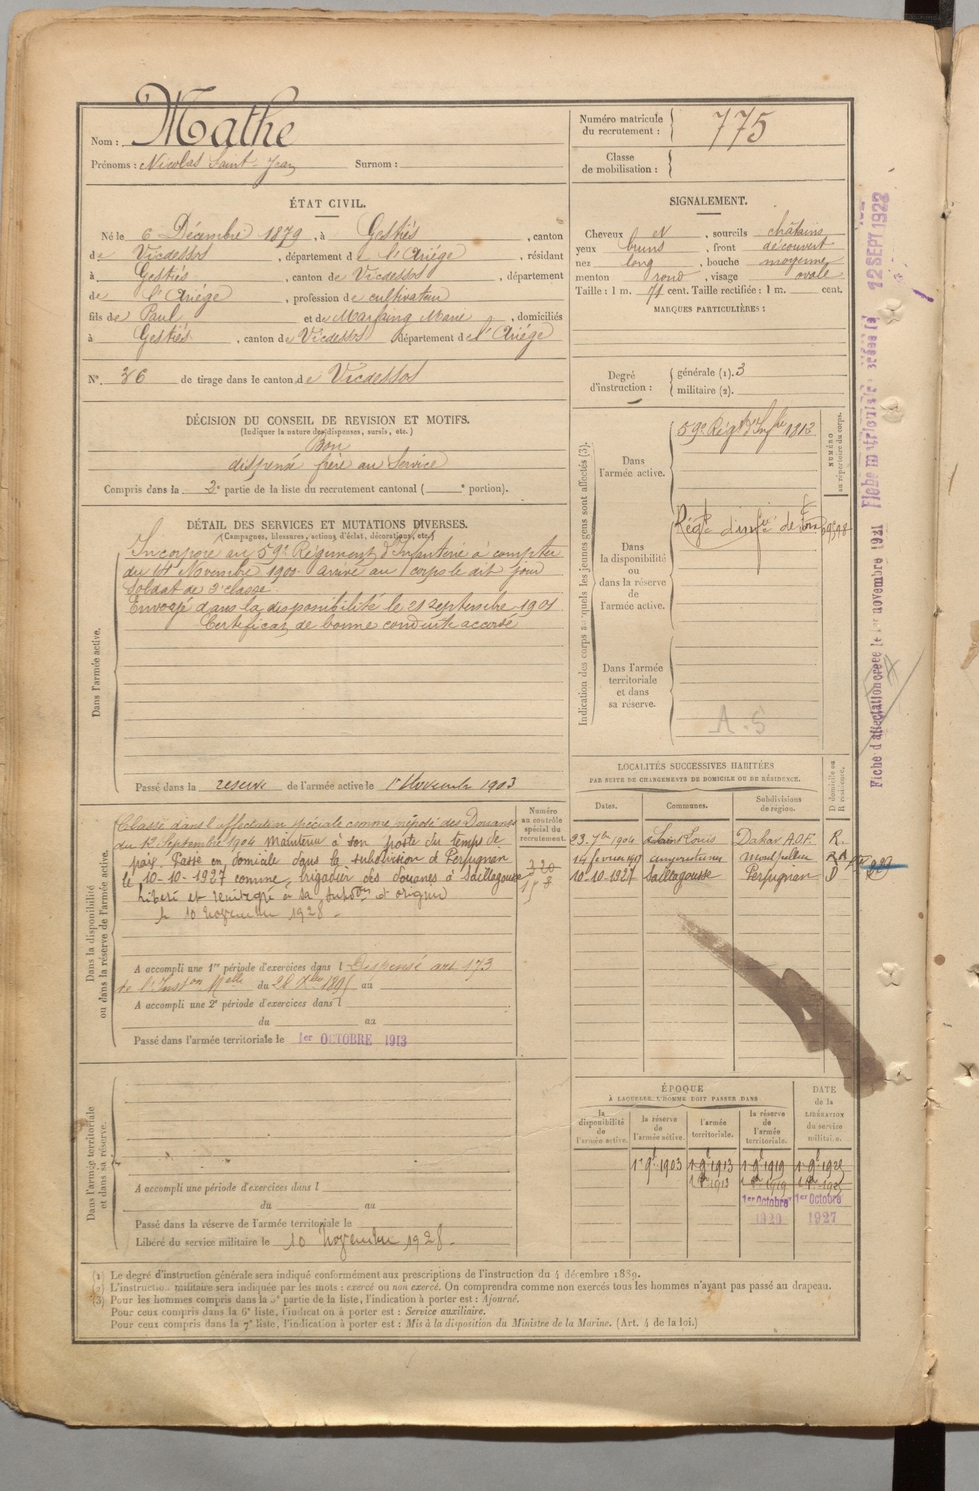 Nom : Mathe
Prénoms : Nicolas Saint-Jean Surnom :
ÉTAT CIVIL.
Né le 6 Décembre 1879, à Gestiés, canton
de Vicdessos, département de l'Ariége, résidant
à Gestiés, canton de Vicdessos, département
de l'Ariége, profession de cultivateur
fils de Paul et de Marie, domiciliés
à Gestiés, canton de Vicdessos département de l'Ariége
N° 36 de tirage dans le canton de Vicdessos
DÉCISION DU CONSEIL DE REVISION ET MOTIFS.
(Indiquer la nature des dispenses, sursis, etc.)
Bon
dispensé frère au Service
Compris dans la 2e partie de la liste du recrutement cantonal ( e portion).
DÉTAIL DES SERVICES ET MUTATIONS DIVERSES.
(Campagnes, blessures, actions d'éclat, décorations, etc.)
Dans l'armée active.
Incorporé au 59e Régiment d'Infanterie à compter
du Novembre 1900 arrivé au corps le dit jour
Soldat de 2e classe
Envoyé dans la disponibilité le 21 septembre 1901
Certificat de bonne conduite accordé
Passé dans la réserve de l'armée active le 1er Novembre 1903
Dans la disponibilité
ou dans la réserve de l'armée active.
Numéro
au contrôle
spécial du
recrutement.
Classé dans l'affectation spéciale comme préposé des Douanes
du 12 Septembre 1904 maintenu à son poste du temps de
paix. Passé en domicile dans la subdivision d Perpignan
le 10-10-1927 comme brigadier des douanes à Saillagouse
Libéré et réintégré à sa subdon d'origine
le 10 novembre 1928.
A accompli une 1re période d'exercices dans l Dispensé art 173
de l'Inston Melle du 28 Xbre 1895 au
A accompli une 2e période d'exercices dans l
du au
Passé dans l'armée territoriale le 1er OCTOBRE 1913
Dans l'armée territoriale
et dans sa réserve.
A accompli une période d'exercices dans l
du au
Passé dans la réserve de l'armée territoriale le
Libéré du service militaire le 10 Novembre 1928.
Numéro matricule
du recrutement : 775
Classe
de mobilisation :
SIGNALEMENT.
Cheveux et, sourcils châtains
yeux bruns, front découvert
nez long, bouche moyenne
menton rond, visage ovale
Taille : 1 m. 71 cent. Taille rectifiée : 1 m. cent.
MARQUES PARTICULIÈRES :
Degré
d'instruction :
générale (1). 3
militaire (2).
Indication des corps auxquels les jeunes gens sont affectés (3).
NUMÉRO
au répertoire du corps.
Dans
l'armée active.
59e Régt d'Infie 1813
Dans
la disponibilité
ou
dans la réserve
de
l'armée active.
Régt d'infie de
Dans l'armée
territoriale
et dans
sa réserve.
A.S
LOCALITÉS SUCCESSIVES HABITÉES
PAR SUITE DE CHANGEMENTS DE DOMICILE OU DE RÉSIDENCE.
Dates. Communes. Subdivisions de région. D domicile ou R résidence.
23 7bre 1904 Saint Louis Dakar A.O.F. R.
14 février Montpellier
10-10-1927 Saillagouse Perpignan D
ÉPOQUE
À LAQUELLE L'HOMME DOIT PASSER DANS
DATE
de la
LIBÉRATION
du service
militaire.
la disponibilité de l'armée active. la réserve de l'armée active. l'armée territoriale. la réserve de l'armée territoriale.
1er 9bre 1903 1er 9bre 1913 1er 9bre 1919 1er 9bre 1925
1er Octobre 1er Octobre
1920 1927
Fiche d'affectation créée le 1er novembre 1921 Fiche matriculaire créée le 12 SEPT. 1922
(1) Le degré d'instruction générale sera indiqué conformément aux prescriptions de l'instruction du 4 décembre 1889.
(2) L'instruction militaire sera indiquée par les mots : exercé ou non exercé. On comprendra comme non exercés tous les hommes n'ayant pas passé au drapeau.
(3) Pour les hommes compris dans la 5e partie de la liste, l'indication à porter est : Ajourné.
Pour ceux compris dans la 6e liste, l'indication à porter est : Service auxiliaire.
Pour ceux compris dans la 7e liste, l'indication à porter est : Mis à la disposition du Ministre de la Marine. (Art. 4 de la loi.)